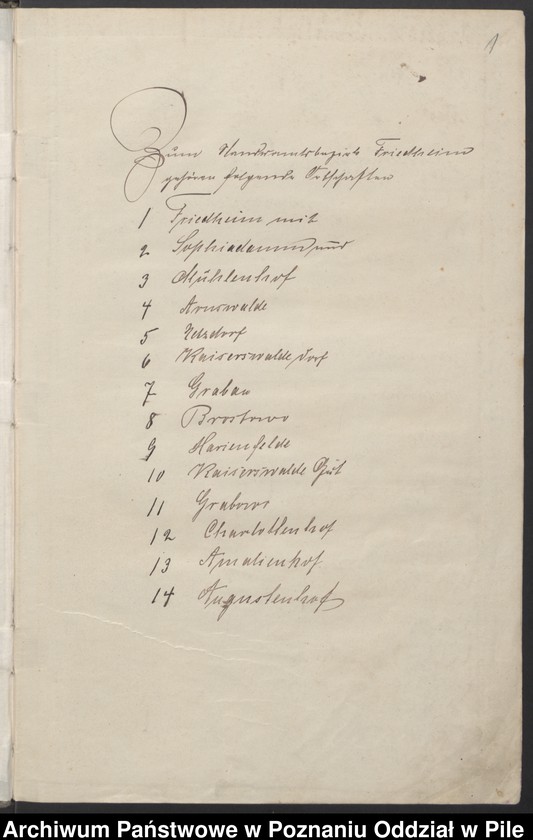 1
Zum Standesamtsbezirk Friedheim
gehören folgende Ortschaften
1 Friedheim mit
2 Sophiadamm und
3 Mühlenhof
4 Arnswalde
5
6 Kaiserswalde Dorf
7 Grabau
8 Brostowo
9 Marienfelde
10 Kaiserswalde Gut
11 Grabowo
12 Charlottenhof
13 Amalienhof
14 Augustenhof
Archiwum Państwowe w Poznaniu Oddział w Pile